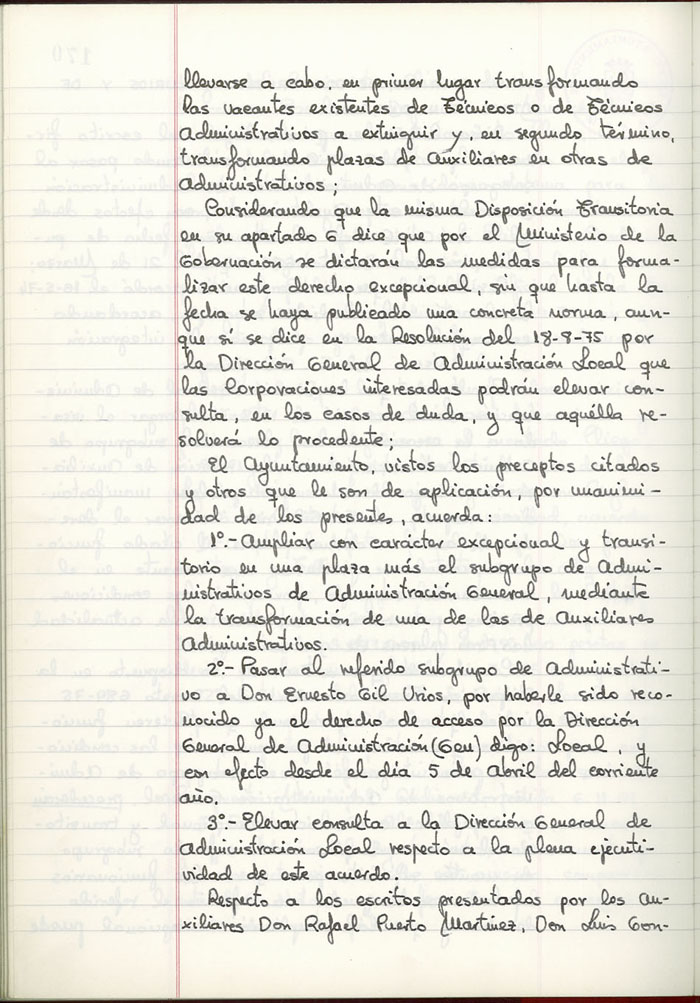 llevarse a cabo, en primer lugar transformando
las vacantes existentes de Técnicos o de Técnicos
Administrativos a extinguir y, en segundo término,
transformando plazas de Auxiliares en otras de
Administrativos;
Considerando que la misma Disposición Transitoria
en su apartado 6 dice que por el Ministerio de la
Gobernación se dictarán las medidas para forma-
lizar este derecho excepcional, sin que hasta la
fecha se haya publicado una concreta norma, aun-
que sí se dice en la Resolución del 18-8-75 por
la Dirección General de Administración Local que
las Corporaciones interesadas podrán elevar con-
sulta, en los casos de duda, y que aquélla re-
solverá lo procedente;
El Ayuntamiento, vistos los preceptos citados
y otros que le son de aplicación, por unanimi-
dad de los presentes, acuerda:
1º.- Ampliar con carácter excepcional y transi-
torio en una plaza más el subgrupo de Admi-
nistrativos de Administración General, mediante
la transformación de una de las de Auxiliares
Administrativos.
2º.- Pasar al referido subgrupo de Administrati-
vo a Don Ernesto Gil Urios, por haberle sido reco-
nocido ya el derecho de acceso por la Dirección
General de Administración (Gen) digo: Local, y
con efecto desde el día 5 de Abril del corriente
año.
3º.- Elevar consulta a la Dirección General de
Administración Local respecto a la plena ejecuti-
vidad de este acuerdo.
Respecto a los escritos presentados por los Au-
xiliares Don Rafael Puerto Martínez, Don Luis Gon-